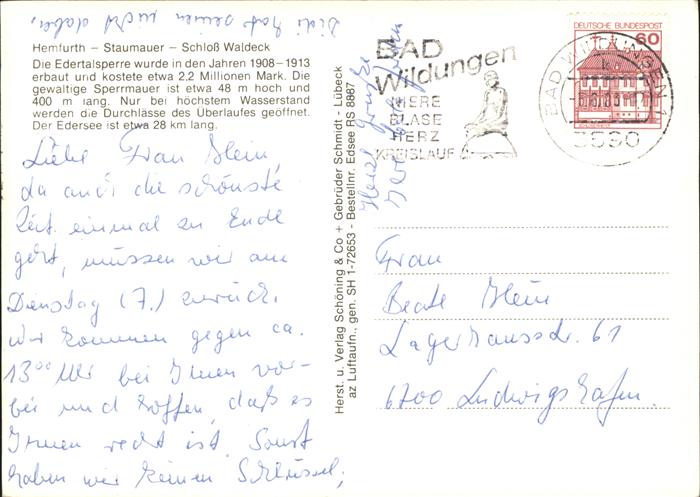 Hemfurth – Staumauer – Schloß Waldeck
Die Edertalsperre wurde in den Jahren 1908–1913
erbaut und kostete etwa 2,2 Millionen Mark. Die
gewaltige Sperrmauer ist etwa 48 m hoch und
400 m lang. Nur bei höchstem Wasserstand
werden die Durchlässe des Überlaufes geöffnet.
Der Edersee ist etwa 28 km lang.
Liebe Frau Klein,
da auch die schönste
Zeit einmal zu Ende
geht, müssen wir am
Dienstag (7.) zurück.
Wir kommen gegen ca.
13⁰⁰ Uhr bei Ihnen vor-
bei und hoffen, daß es
Ihnen recht ist. Sonst
haben wir keinen Schlüssel,
Didi hat seinen nicht dabei.
Herzl. Grüße
Herst. u. Verlag Schöning & Co + Gebrüder Schmidt - Lübeck
az Luftaufn., gen. SH 1-72653 - Bestellnr. Edsee BS 8887
BAD
Wildungen
NIERE
BLASE
HERZ
KREISLAUF
DEUTSCHE BUNDESPOST
60
BAD WILDUNGEN 1
3590
Frau
Beate Klein
Lagerhausstr. 61
6700 Ludwigshafen.